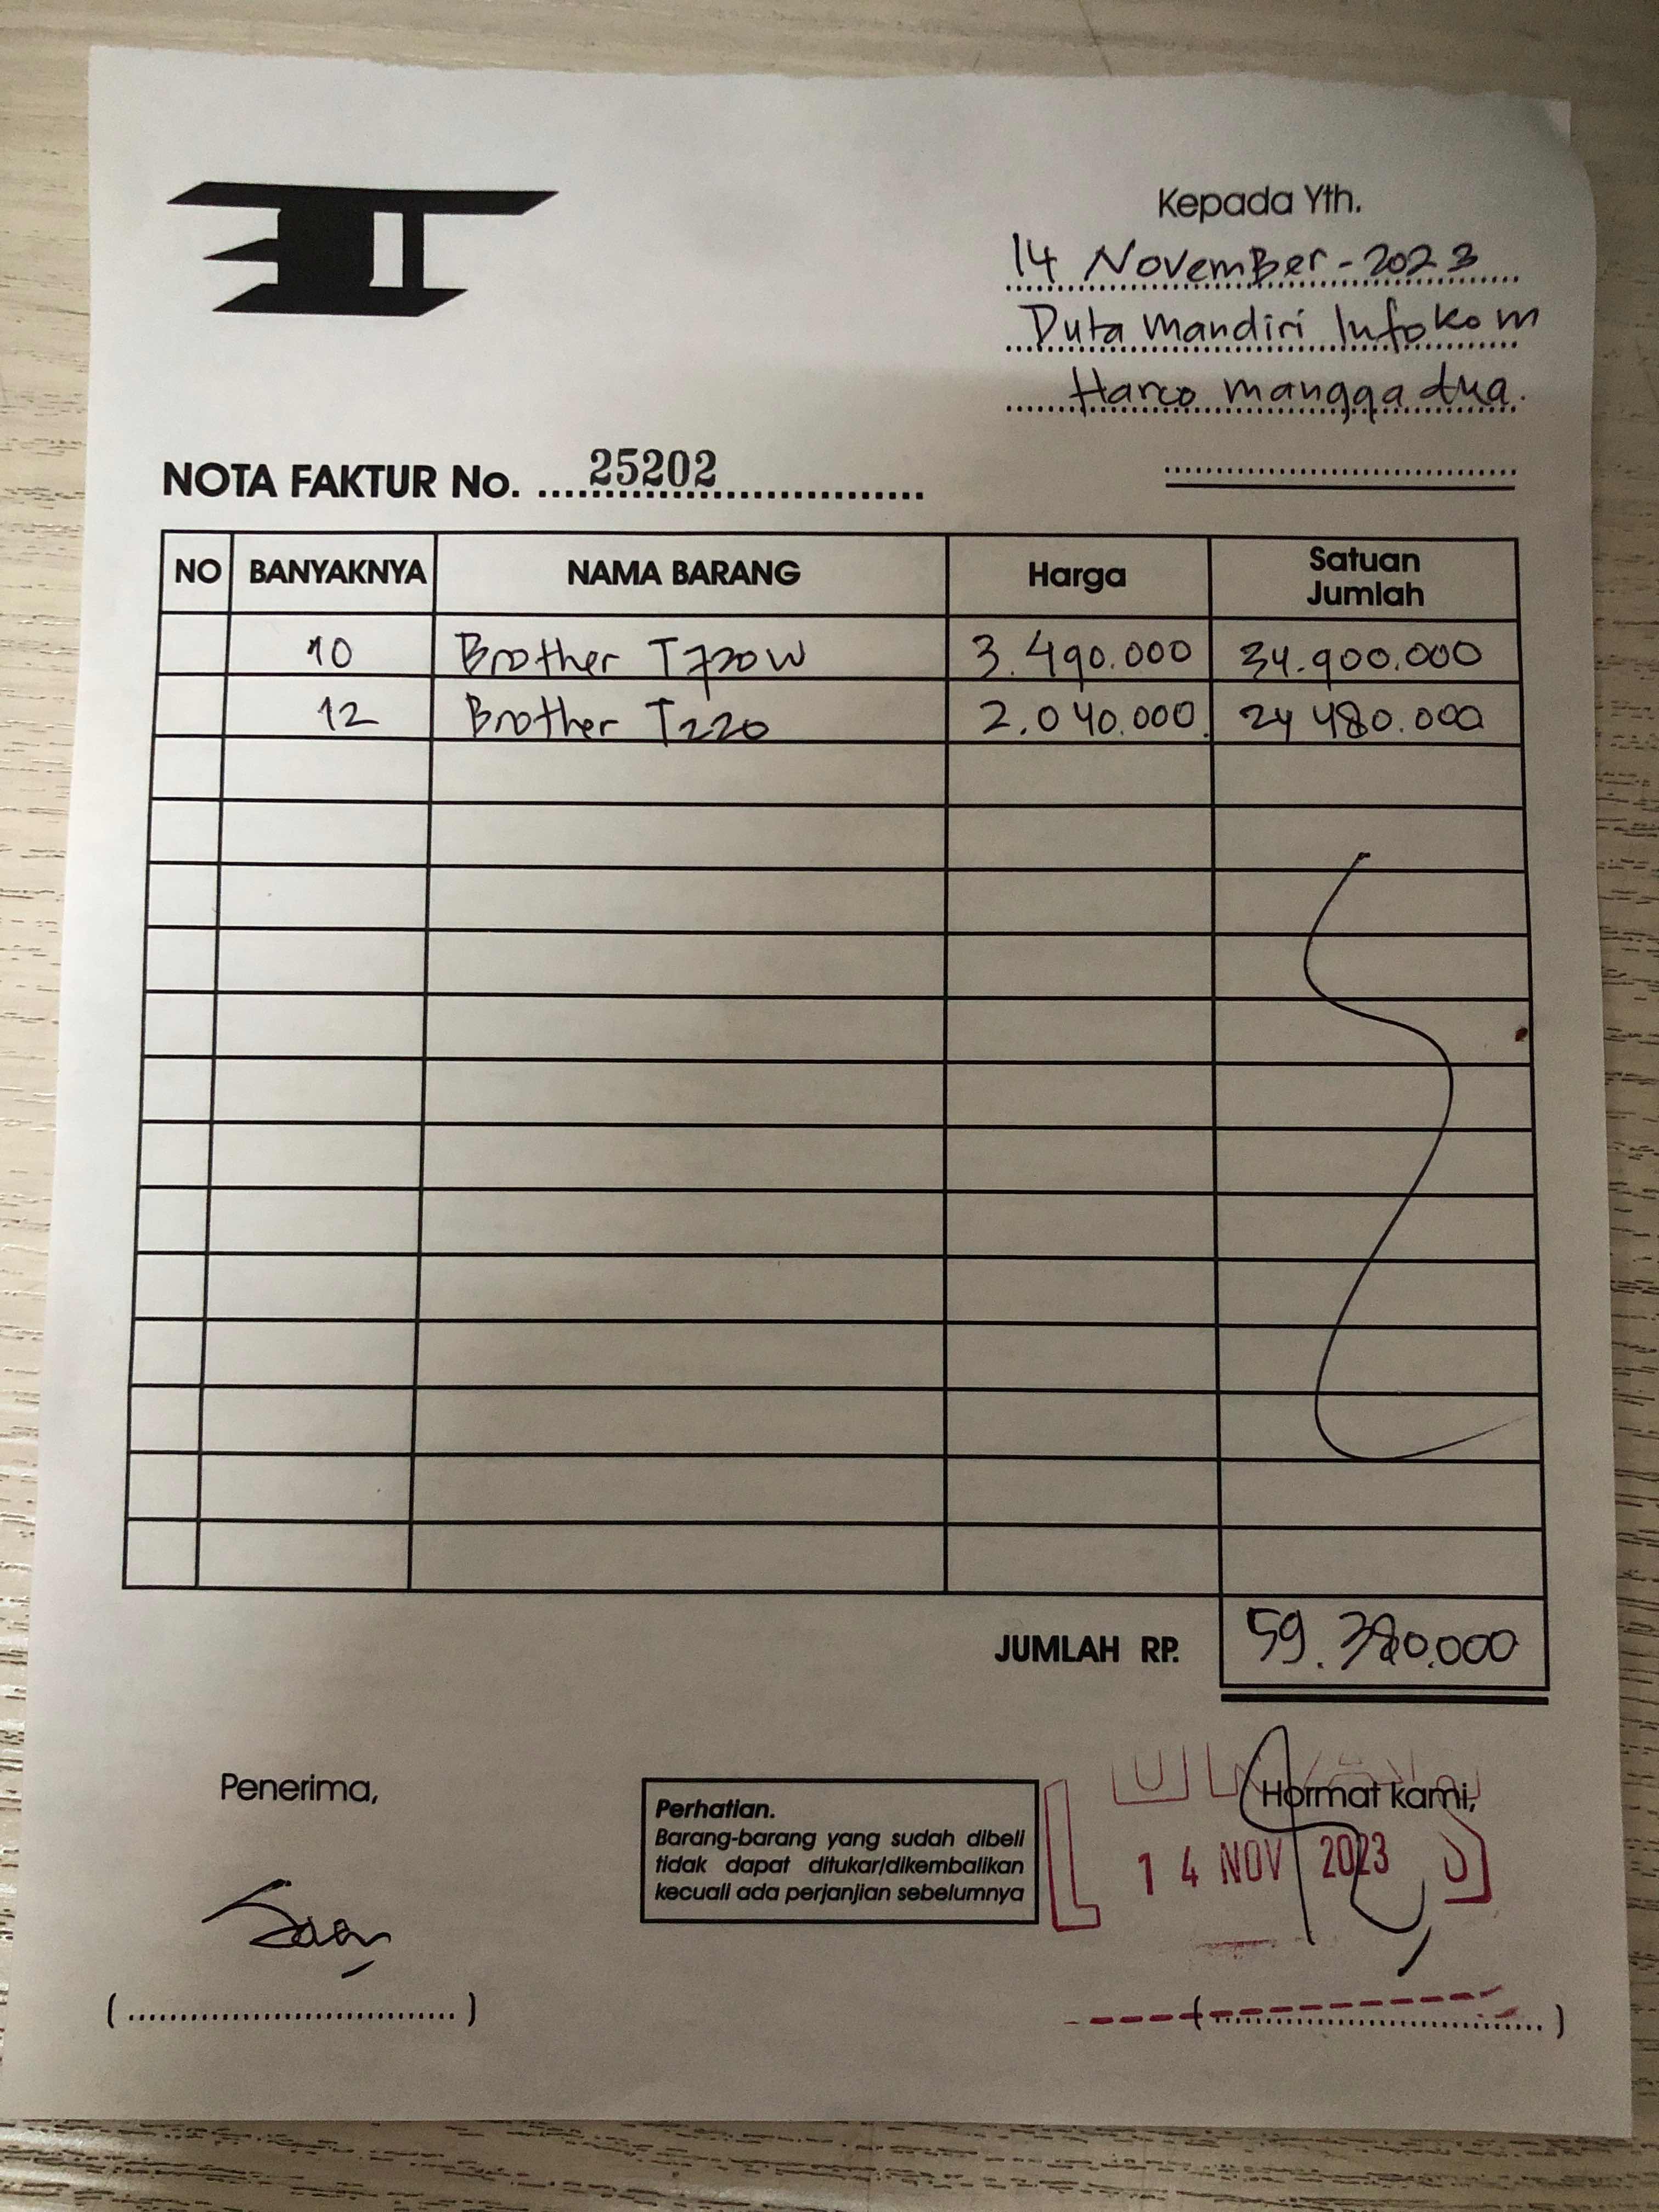 Kepada Yth.
14 November - 2023
Duta Mandiri Infokom
Harco mangga dua.
NOTA FAKTUR No. 25202
NO BANYAKNYA NAMA BARANG Harga Satuan Jumlah
10 Brother T720W 3.490.000 34.900.000
12 Brother T220 2.040.000 24 480.000
JUMLAH RP. 59.380.000
Penerima,
Perhatian.
Barang-barang yang sudah dibeli
tidak dapat ditukar/dikembalikan
kecuali ada perjanjian sebelumnya
Hormat kami,
LUNAS
14 NOV 2023